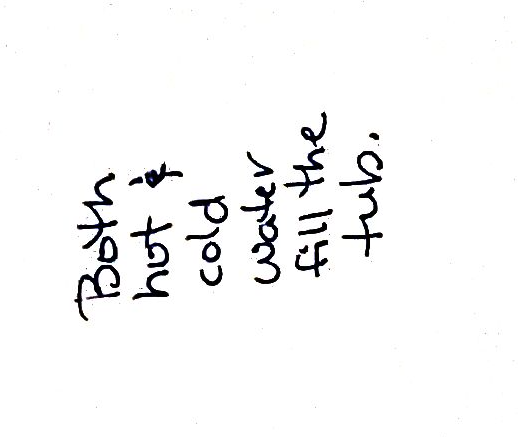 Both
hot &
cold
water
fill the
tub.